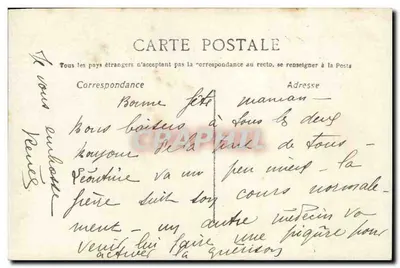 CARTE POSTALE
Tous les pays étrangers n'acceptant pas la correspondance au recto, se renseigner à la Poste
Correspondance
Adresse
Bonne fête maman —
Bons baisers à tous les deux
Bonjour de la part de tous —
Léontine va un peu mieux — la
fièvre suit son cours normale-
ment — un autre médecin va
venir lui faire une piqûre pour
activer la guérison
Je vous embrasse
Renée